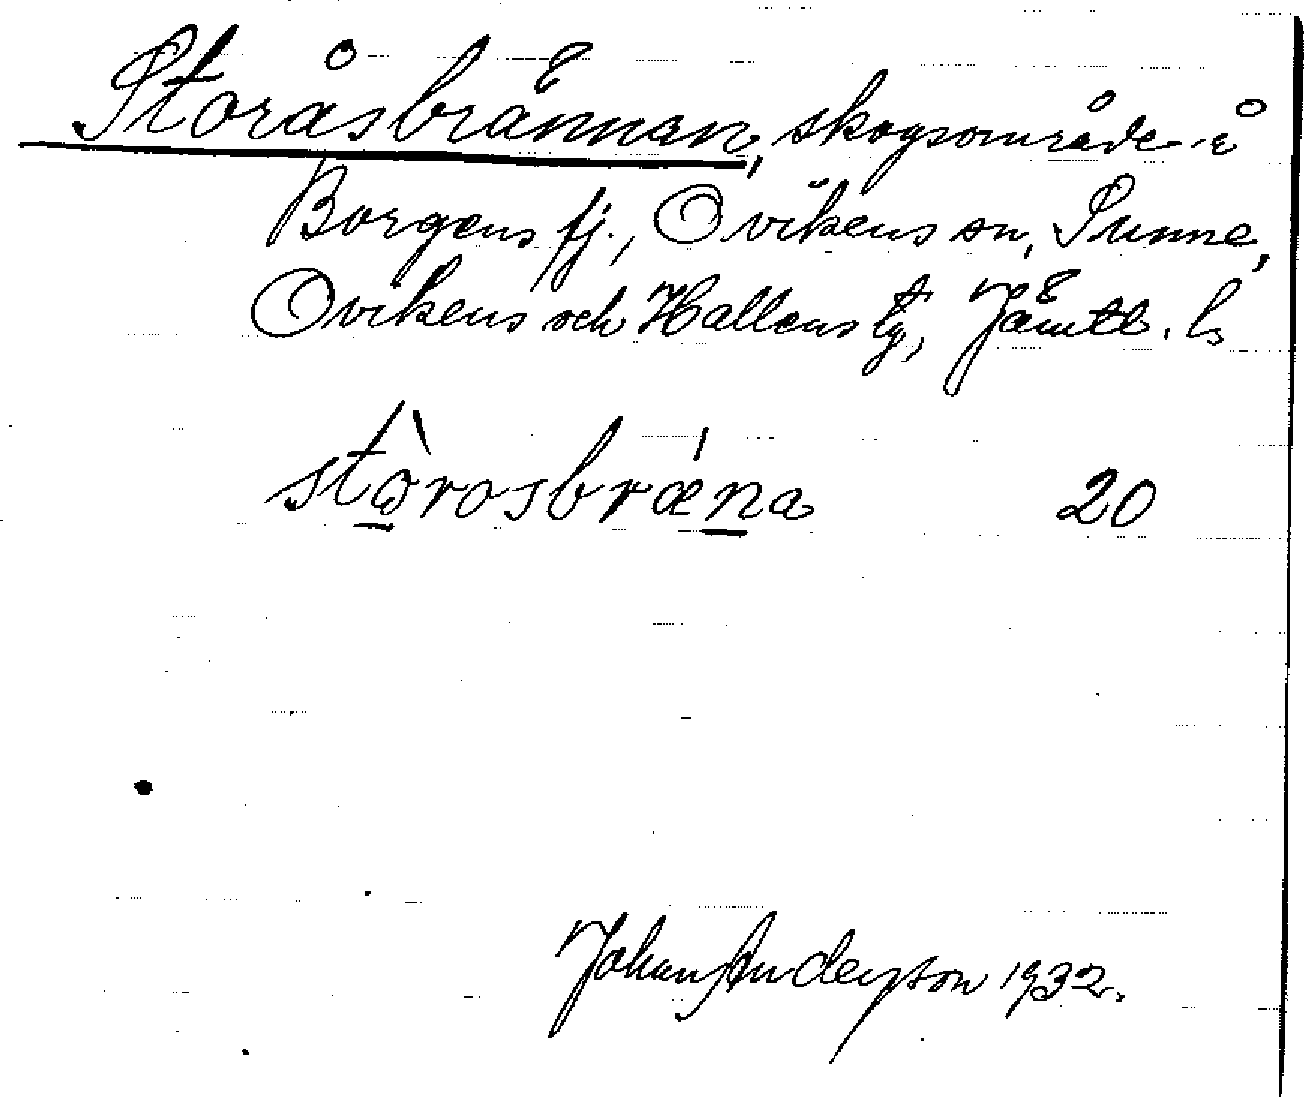 Storåsbrännan, skogsområde i
Borgens fj., Ovikens sn, Sunne,
Ovikens och Hallens tg, Jämtl. l.
stòrosbrǽna 20
Johan Anderson 1932.